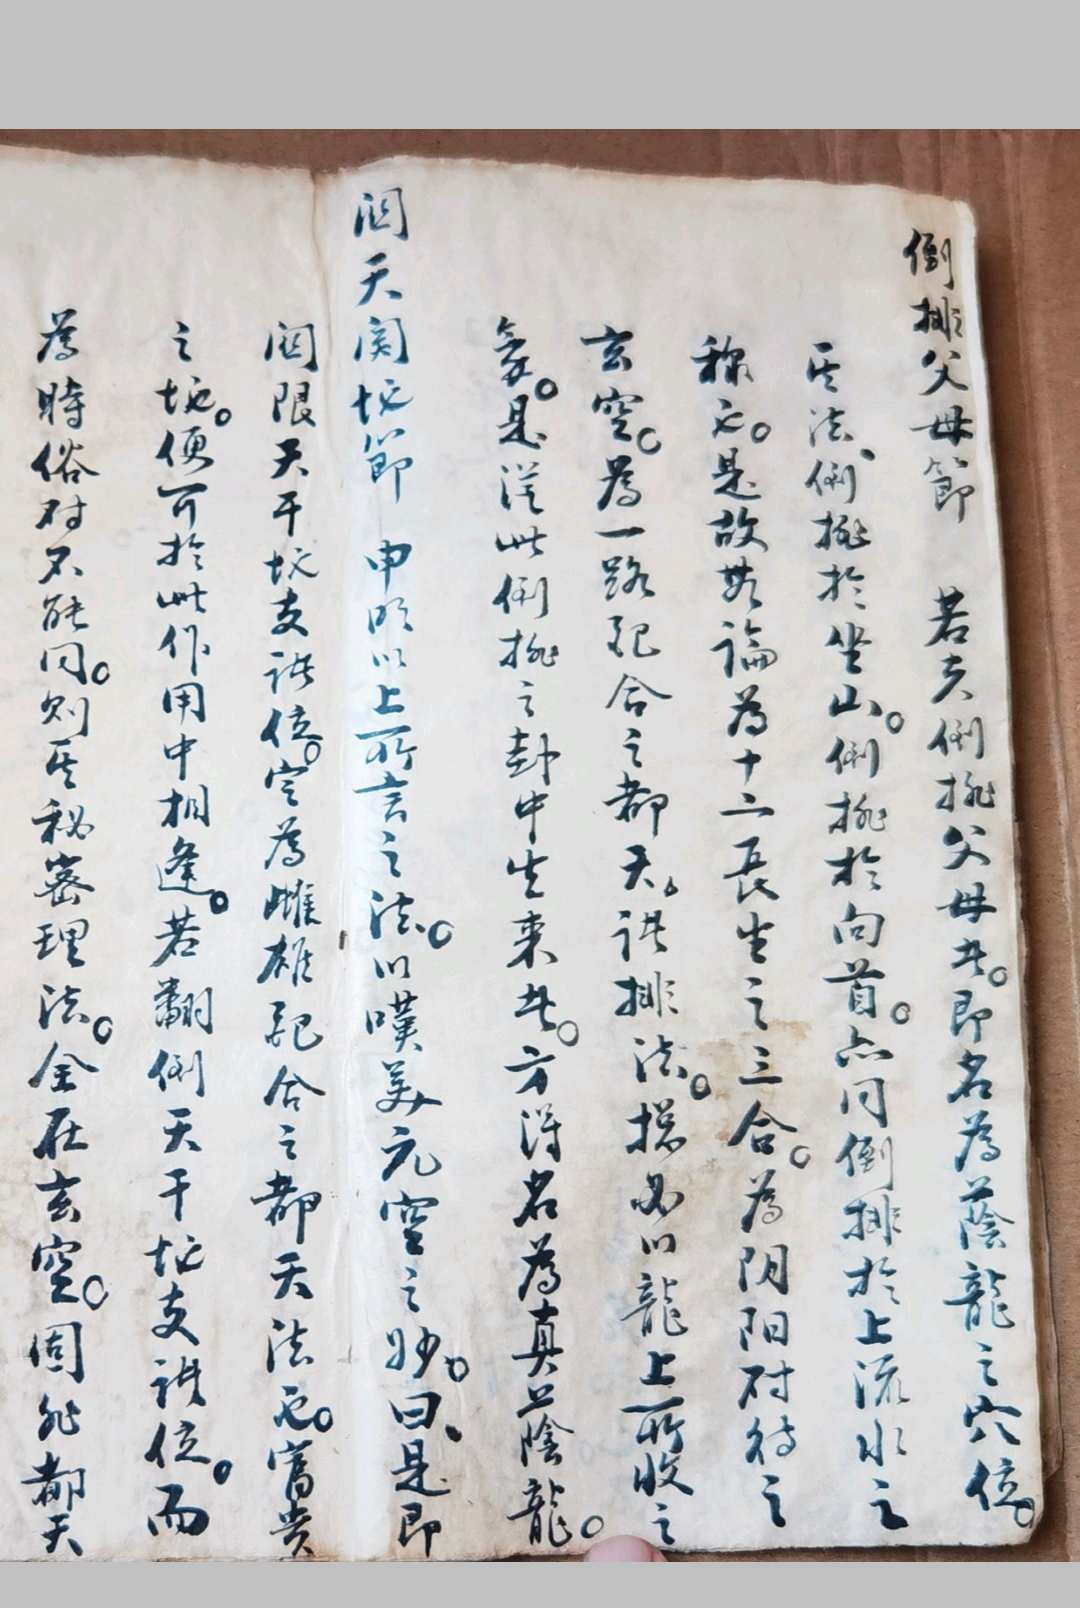 倒排父母節　若夫倒排父母者。即名為蔭龍之穴位。
其法、倒排於坐山。倒排於向首。亦同倒排於上流水之
称也。是故其論為十二長生之三合。為阴阳对待之
玄空。為一路配合之都天。諸排法。總必以龍上所收之
氣。是從此倒排之卦中生来者。方得名為真正蔭龍。
関天関地節　申明以上所言之法。以嘆美元空之妙。曰、是即
関限天干地支諸位。定為雌雄配合之都天法也。富貴
之地。便可於此作用中相逢。若翻倒天干地支諸位。而
為時俗对不能同。则其秘密理法。全在玄空。固非都天